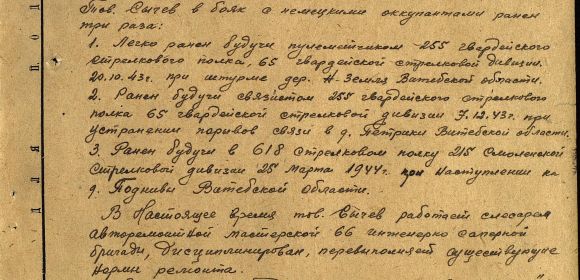 Тов. Сычев в боях с немецкими оккупантами ранен
три раза:
1. Легко ранен будучи пулеметчиком 255 гвардейского
стрелкового полка, 65 гвардейской стрелковой дивизии.
20.10.43г. при штурме дер. Н-Земля Витебской области.
2. Ранен будучи связистом 255 гвардейского стрелкового
полка 65 гвардейской стрелковой дивизии 7.12.43г. при
устранении порывов связи в д. Петраки Витебской области.
3. Ранен будучи в 618 стрелковом полку 215 Смоленской
стрелковой дивизии 25 марта 1944г. при наступлении на
д. Поднивы Витебской области.
В настоящее время тов. Сычев работает слесарем
авторемонтной мастерской 66 инженерно саперной
бригады, дисциплинирован, перевыполняет существующие
нормы ремонта.
ДЛЯ ПОД